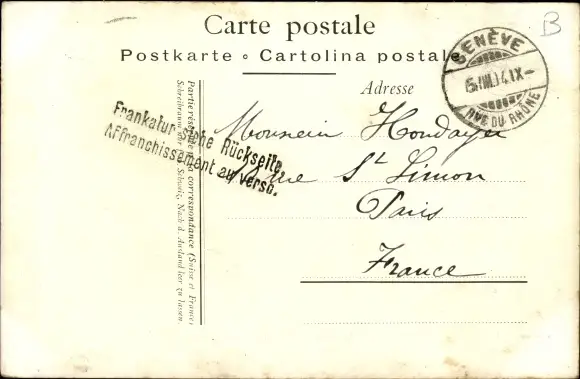 Carte postale
Postkarte ∘ Cartolina postale
B
GENÈVE
RUE DU RHÔNE
Adresse
Frankatur siehe Rückseite.
Affranchissement au verso.
Monsieur
Rue St Simon
Paris
France
Partie réservée à la correspondance (Suisse et France)
Schreibraum für d. Schweiz, Nach d. Ausland leer zu lassen.